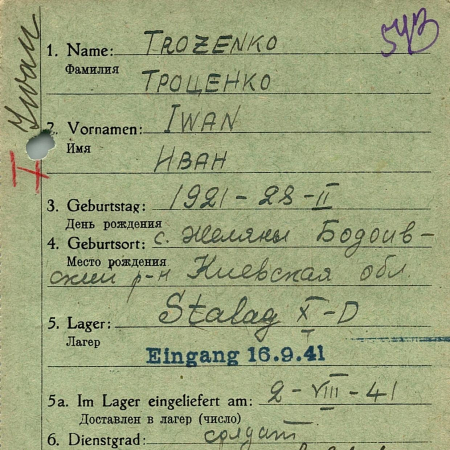 5уВ
Iwan
I
1. Name: TROZENKO
Фамилия ТРОЦЕНКО
2. Vornamen: IWAN
Имя ИВАН
3. Geburtstag: 1921-28-II
День рождения
4. Geburtsort: с. Желяны Бодоив-
Место рождения ский р-н Киевская обл.
5. Lager: Stalag X-D
Лагер
Eingang 16.9.41
5a. Im Lager eingeliefert am: 2-VIII-41
Доставлен в лагер (число)
6. Dienstgrad: солдат